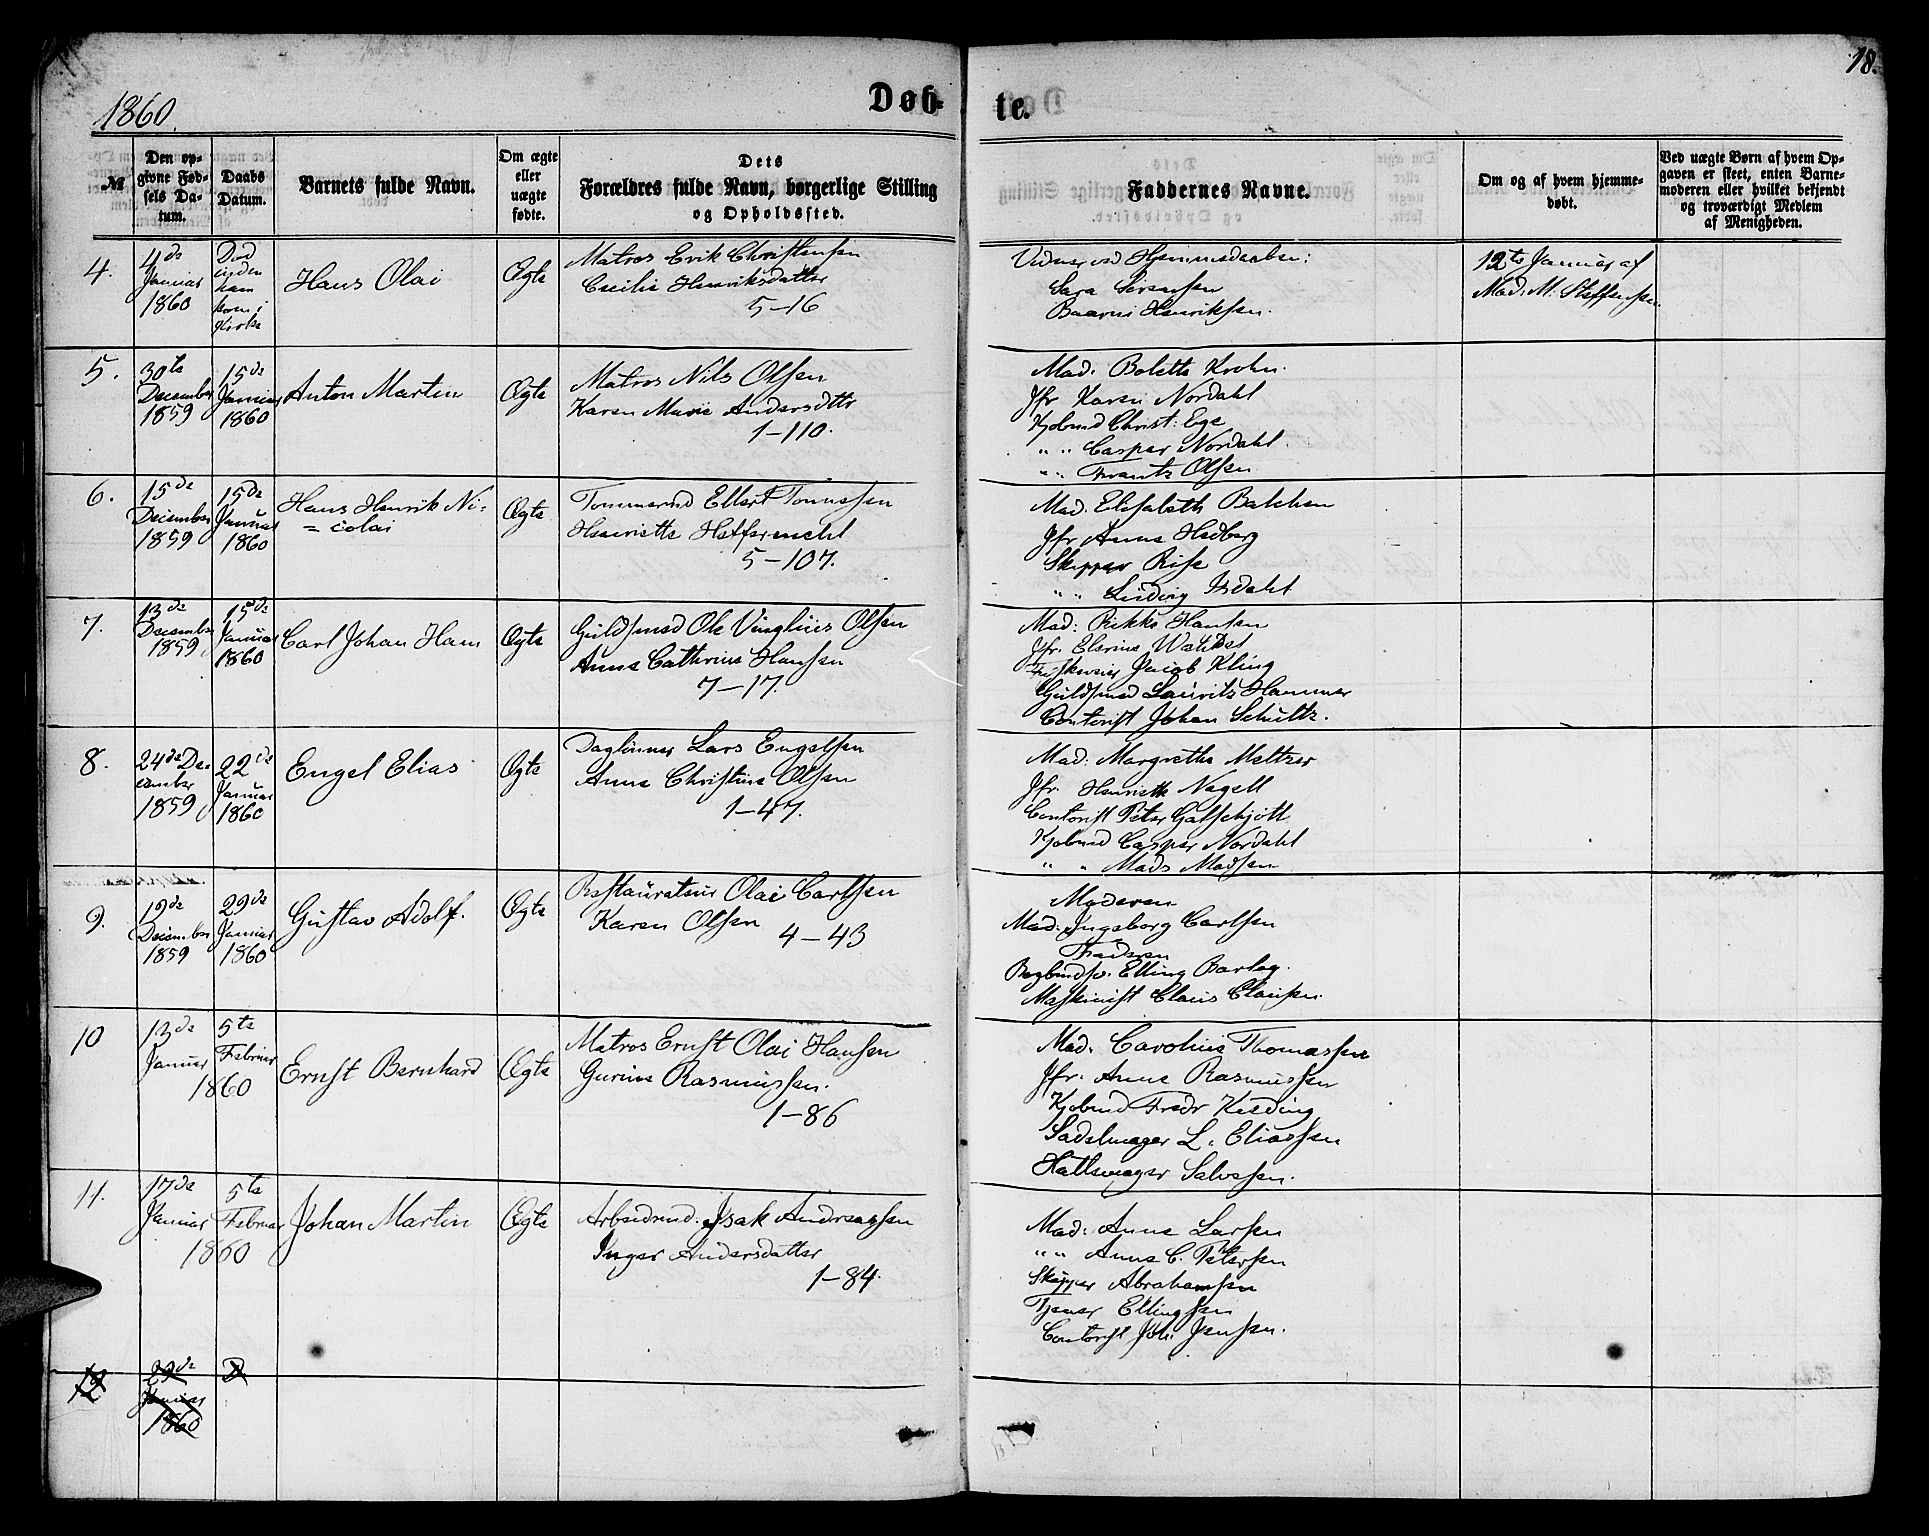 1860.
Døb-
te.
18.
№
Den op-
givne Fød-
sels Da-
tum.
Daabs
Datum.
Barnets fulde Navn.
Om ægte
eller
uægte
fødte.
Dets
Forældres fulde Navn, borgerlige Stilling
og Opholdssted.
Faddernes Navne.
Om og af hvem hjemme-
døbt.
Ved uægte Børn af hvem Op-
gaven er skeet, enten Barne-
moderen eller hvilket bekjendt
og troværdigt Medlem
af Menigheden.
4.
4de
Januar
1860
Død
inden
ham
kom i
Kirke
Hans Olai
Ægte
Matros Erik Christensen
Cecilie Henriksdatter
5-16
Vidner ved Hjemmedaaben:
Sara Sørensen
Henriksen.
12te Januar af
Mad. M. Steffensen
5.
30te
December
1859
15de
Januar
1860
Anton Martin
Ægte
Matros Nils Olsen
Karen Marie Andersdttr
1-110.
Mad. Bolette Krohn.
Jfr Karen Nordahl
Kjøbmd Christ: Ege
" " Casper Nordahl.
" " Frantz Olsen
6.
15de
December
1859
15de
Januar
1860
Hans Henrik Ni-
=colai
Ægte
Tømmermd Ellert Tønnessen
Henriette
5-107.
Mad. Elisabeth Bakken
Jfr Anna Hedberg
Skipper Rise
" " Ludvig Isdahl
7.
13de
December
1859
15de
Januar
1860
Carl Johan Hans
Ægte
Guldsmed Ole Olsen
Anna Cathrine Hansen
7-17.
Mad: Rikke Hansen
Jfr. Elerine
Jacob Kling
Guldsmed Laurits Hammer
Contorist Johan Schultz.
8.
24de De-
cember
1859
22de
Januar
1860
Engel Elias
Ægte
Dagleiner Lars Engelsen
Anna Christine Olsen
1-47.
Mad. Margrethe Meltzer
Jfr. Henriette Nagell
Contorist Peter Galschjøtt
Kjøbmd Casper Nordahl
" " Mads Madsen
9.
19de
December
1859
29de
Januar
1860
Gustav Adolf.
Ægte
Restaurateur Olai Carlsen
Karen Olsen
4-43
Moderen
Mad. Ingeborg Carlsen
Faderen
Elling Barlag.
Maskinist Claus Clausen.
10
13de
Januar
5te
Februar
1860
Ernst Bernhard
Ægte
Matros Ernst Olai Hansen
Gurine Rasmussen.
1-86
Mad. Caroline Thomassen
Jfr. Anna Rasmussen
Kjøbmd Fredr Kielding
Sadelmager L. Eliassen
Hattemager Salvesen.
11.
17de
Januar
5te
Februar
1860
Johan Martin
Ægte
Arbeidsmd. Isak Andreassen
Inger Andersdatter
1-84.
Mad. Anna Larsen
" " Anna C. Petersen
Skipper Abrahamsen
Tjener Ellingsen
Contorist Joh. Jensen.
12
29de
Januar
1860
D